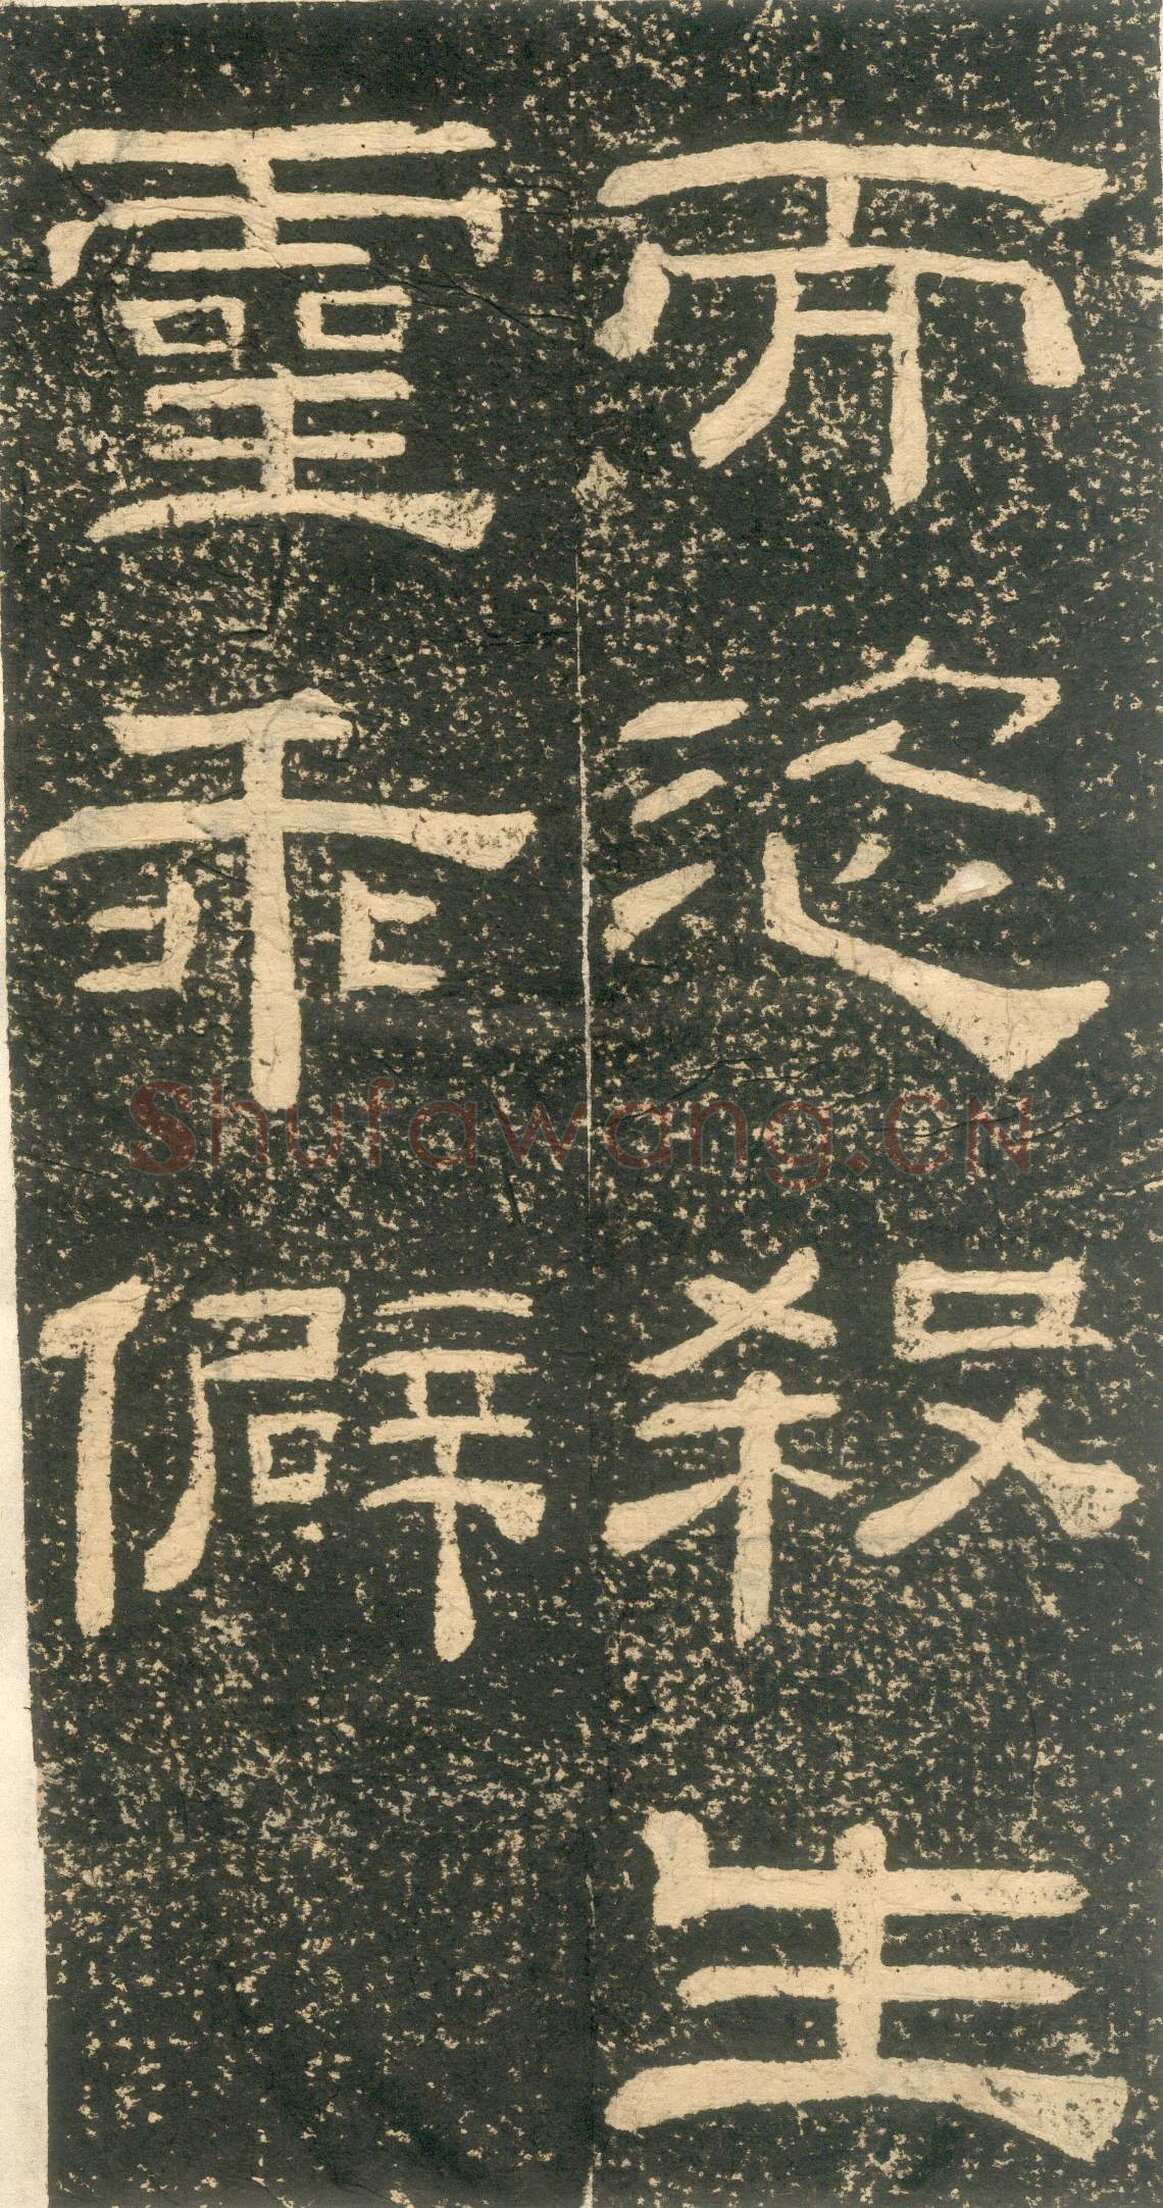 而恣殺生
靈乖僻
Shufawang.CN